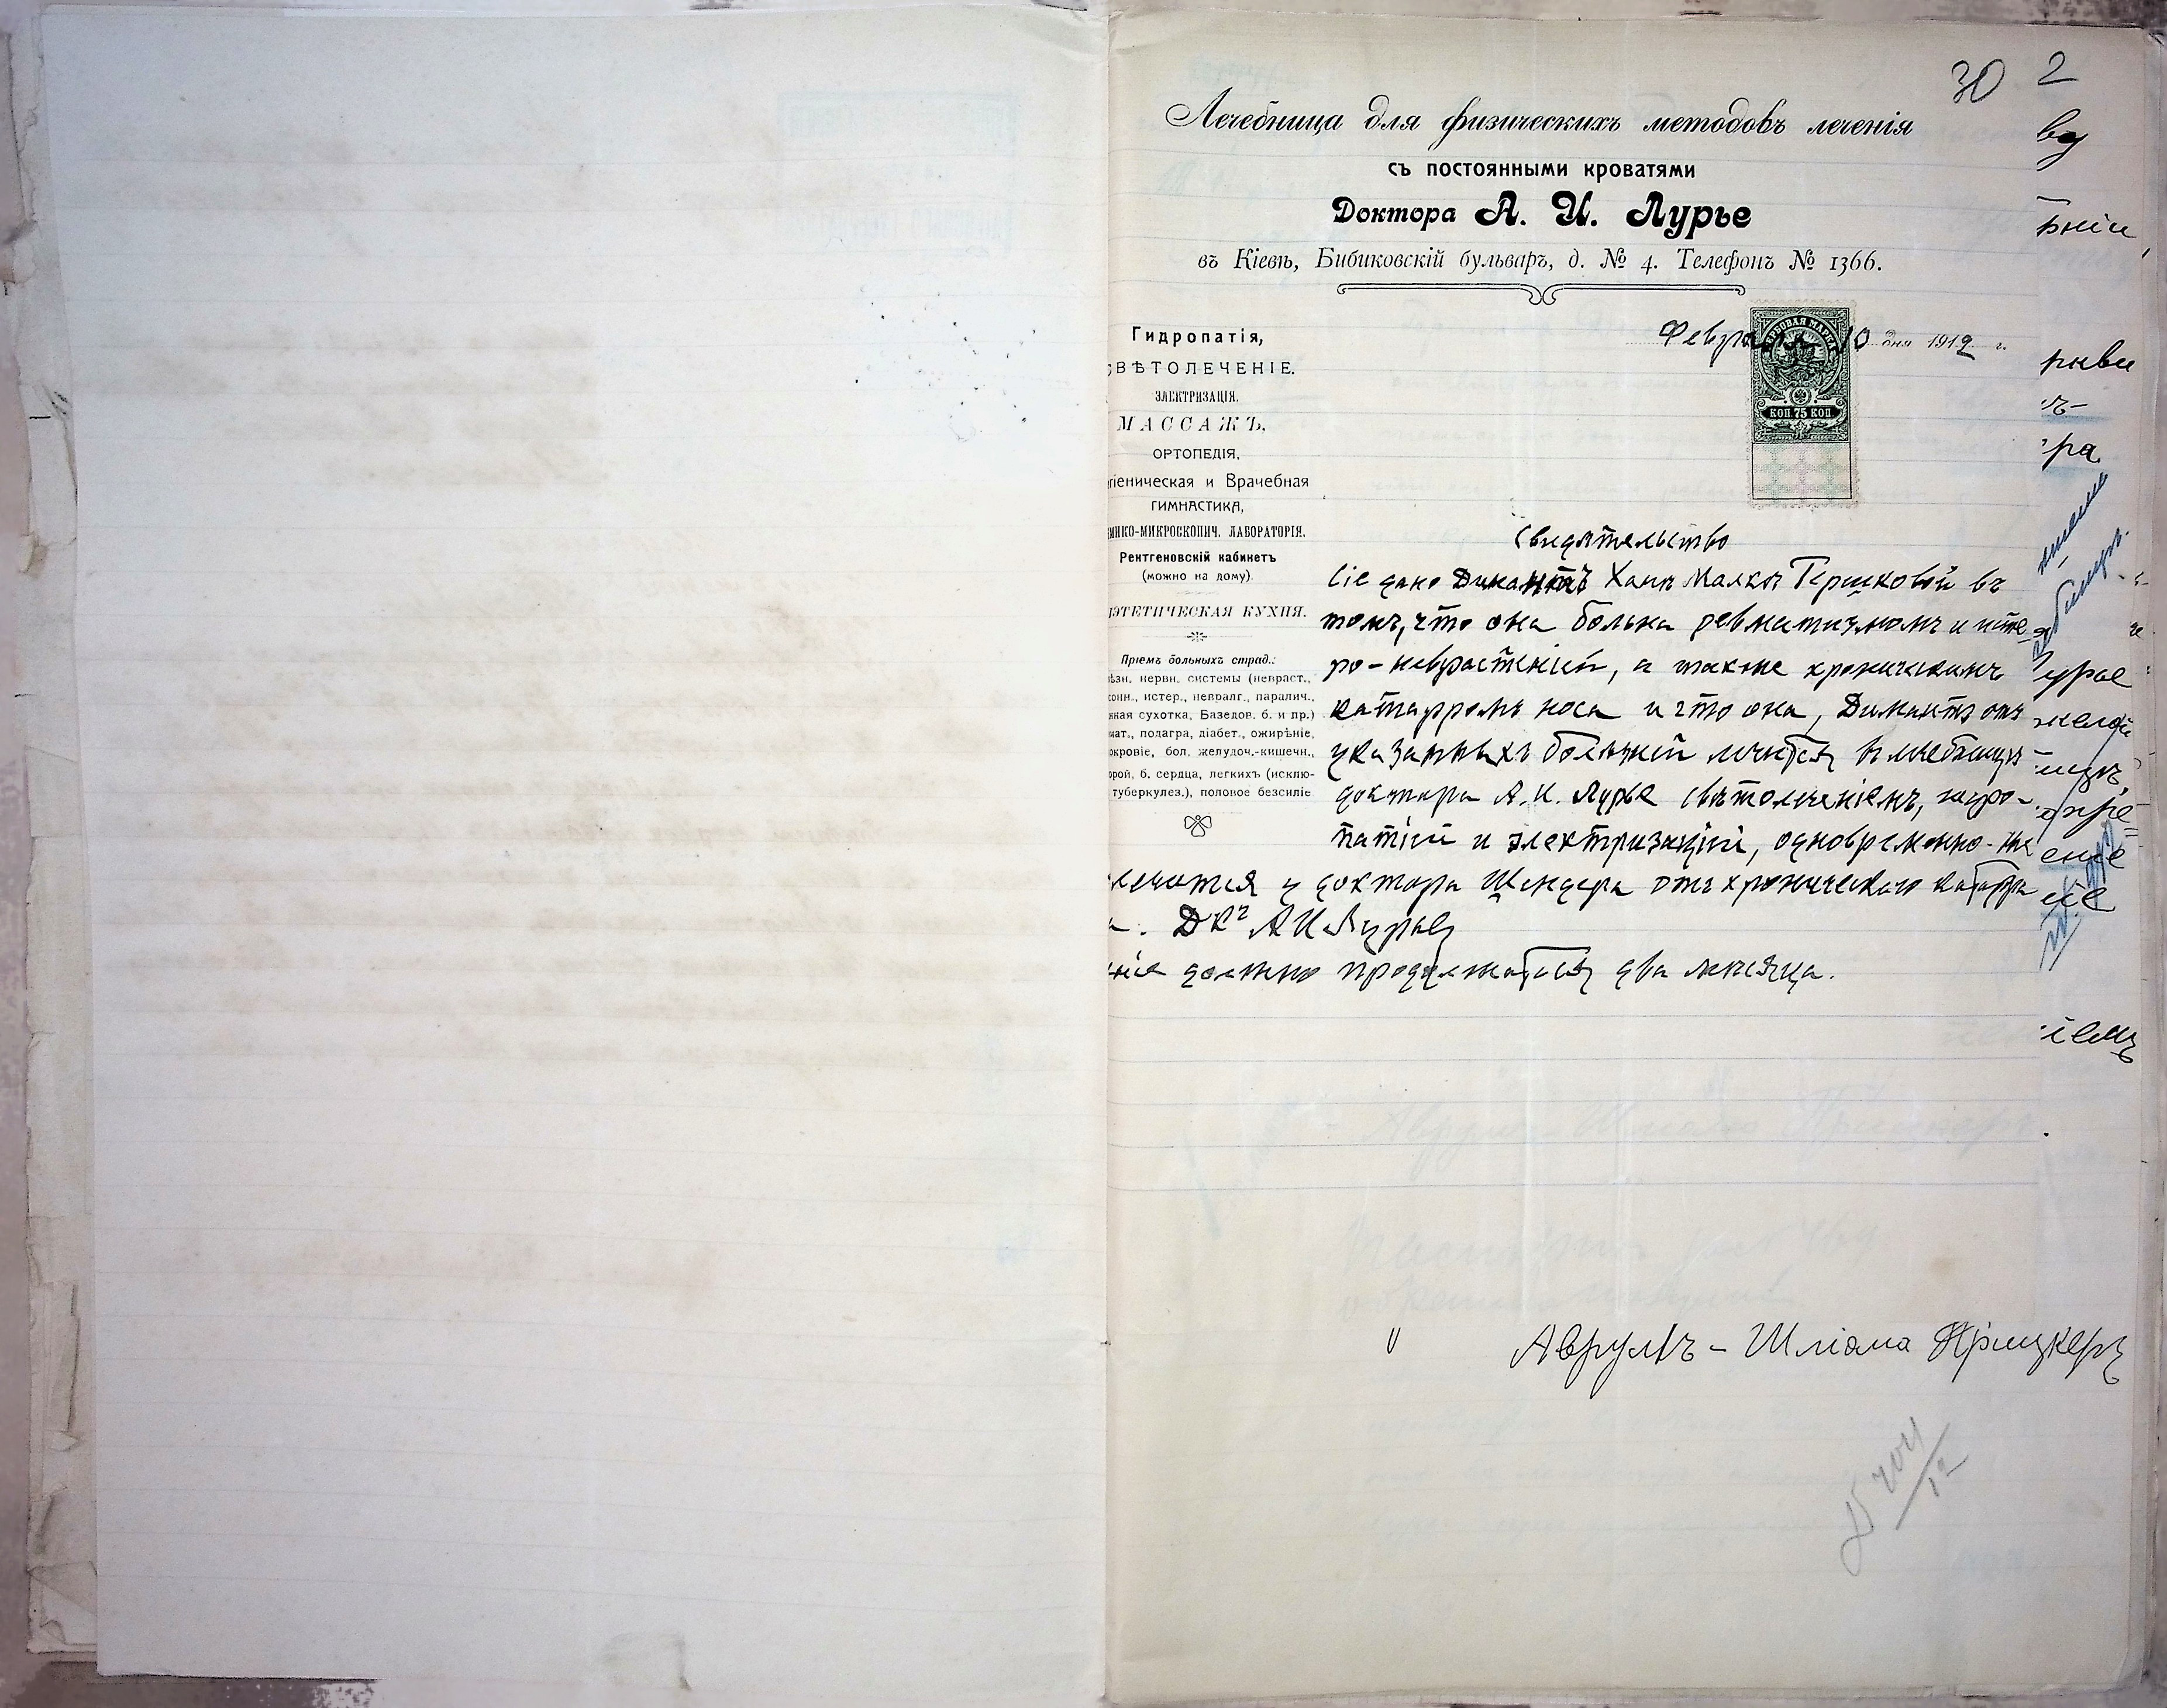 30 2
Лечебница для физическихъ методовъ леченія
съ постоянными кроватями
Доктора А. И. Лурье
въ Кіевѣ, Бибиковскій бульваръ, д. № 4. Телефонъ № 1366.
Февраля 10 дня 1912 г.
ГЕРБОВАЯ МАРКА
КОП. 75 КОП.
Гидропатія,
СВѢТОЛЕЧЕНІЕ.
ЭЛЕКТРИЗАЦІЯ.
МАССАЖЪ.
ОРТОПЕДІЯ,
гіеническая и Врачебная
ГИМНАСТИКА,
МИКО-МИКРОСКОПИЧ. ЛАБОРАТОРІЯ.
Рентгеновскій кабинетъ
(можно на дому).
ІЭТЕТИЧЕСКАЯ КУХНЯ.
Пріемъ больныхъ страд.:
ѣзн. нервн. системы (невраст.,
хонн., истер., невралг., паралич.,
нная сухотка, Базедов. б. и пр.)
мат., подагра, діабет., ожирѣніе,
окровіе, бол. желудоч.-кишечн.,
орой, б. сердца, легкихъ (исклю-
туберкулез.), половое безсиліе
Свидѣтельство
Сіе дано Димантъ Ханѣ Малкѣ Гершковой въ
томъ, что она больна ревматизмомъ и исте-
ро-неврастеніей, а также хроническимъ
катарромъ носа и что она, Димантъ отъ
указанныхъ болѣзней лечится въ лечебницѣ
доктора А. И. Лурье свѣтолеченіемъ, гидро-
патіей и электризаціей, одновременно-же
лечится у доктора Шендера отъ хроническаго катарра
Д-ръ А И Лурье
ніе должно продолжаться два мѣсяца.
ра
урье
еніе
іемъ
Аврумъ-Шліома Прицкеръ